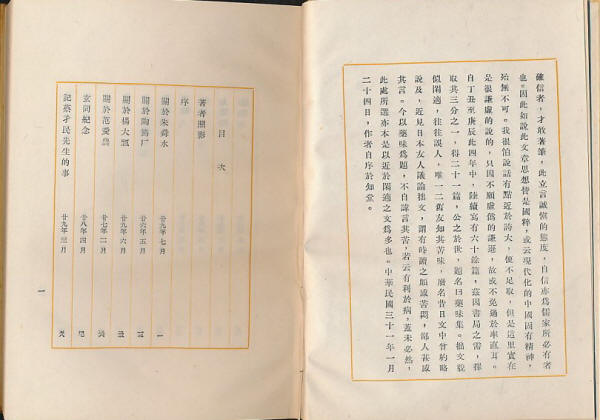 確信者，才敢著筆，此立言誠慤的態度，自信亦為儒家所必有者
也。因此如說此文章思想皆是國粹，或云現代化的中國固有精神，
殆無不可。我很怕說話有點近於誇大，便不足取，但是這里實在
是很謙虛的說的，只因不願虛偽的謙遜，故或不免過於率直耳。
自丁丑至庚辰此四年中，陸續寫有六十餘篇，茲因書局之需，擇
取其三分之一，得二十一篇，公之於世，題名曰藥味集。拙文貌
似閒適，往往誤人，唯一二舊友知其苦味，廢名昔日文中曾約略
說及，近見日本友人議論拙文，謂有時讀之頗感苦悶，鄙人甚感
其言。今以藥味為題，不自諱言其苦，若云有利於病，蓋未必然，
此處所選亦本是以近於閒適之文為多也。中華民國三十一年一月
二十四日，作者自序於知堂。
目次
著者照影
序
關於朱舜水 廿九年七月 一
關於陶筠厂 廿六年五月
關於楊大瓢 廿九年六月
關於范愛農 廿七年二月
玄同紀念 廿八年四月
記蔡孑民先生的事 廿九年三月
一